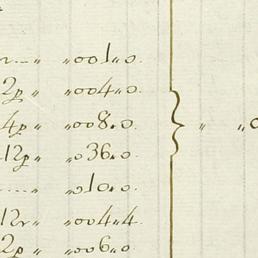 r....„ „001„0.
2p„ „004„0.
4p„ „008.0.
12p„ „036.0. „ „0
.....„ „010.0.
12r„ „004.4.
2p„ „006„0.